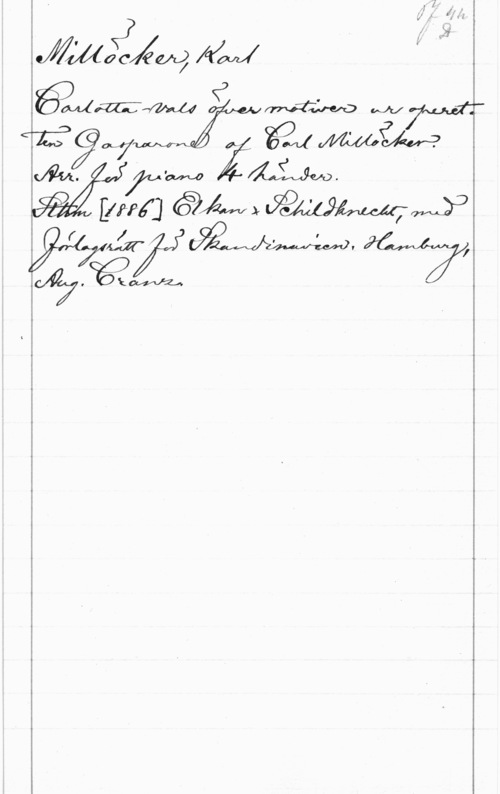 Pf 4h
D
Millöcker, Karl
Carlotta-vals öfver motiver ur operet-
ten Gasparone af Carl Millöcker.
Arr. för piano 4 händer.
Sthm [1886] Elkan & Schildknecht, med
förlagsrätt för Skandinavien. Hamburg,
Aug. Cranz.